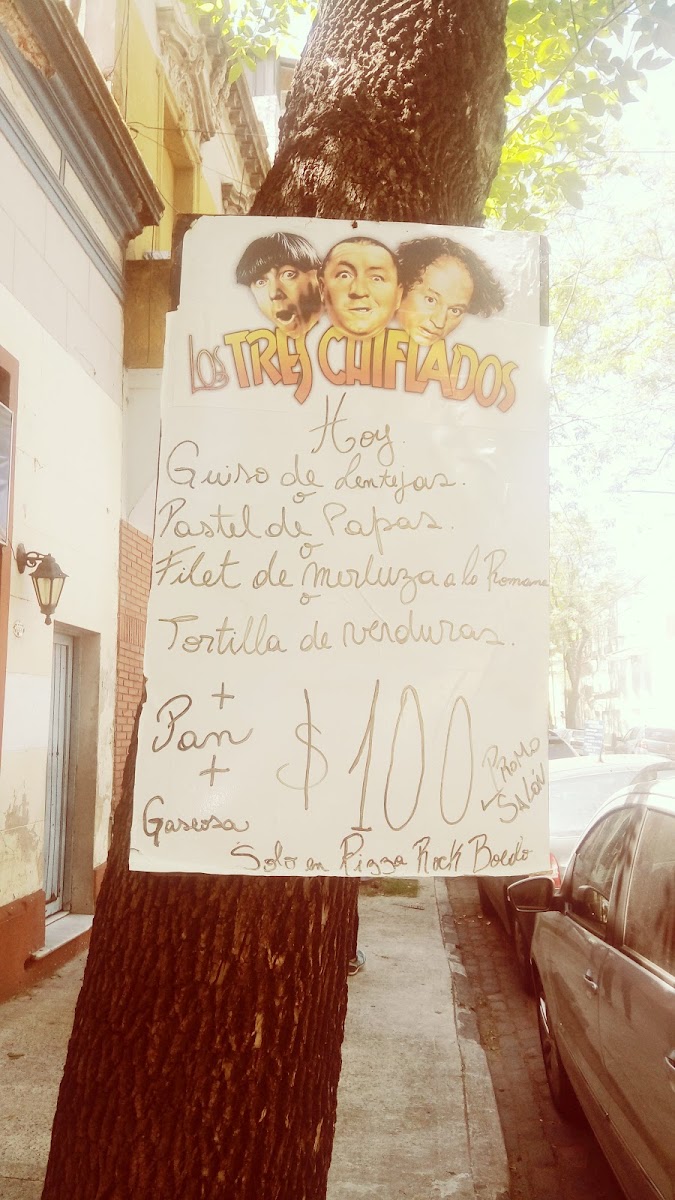 LOS TRES CHIFLADOS
Hoy.
Guiso de Lentejas.
o
Pastel de Papas.
o
Filet de Merluza a la Romana
o
Tortilla de verduras.
+
Pan
+
Gaseosa
$100
PROMO
SALÓN
Solo en Pizza Rock Boedo